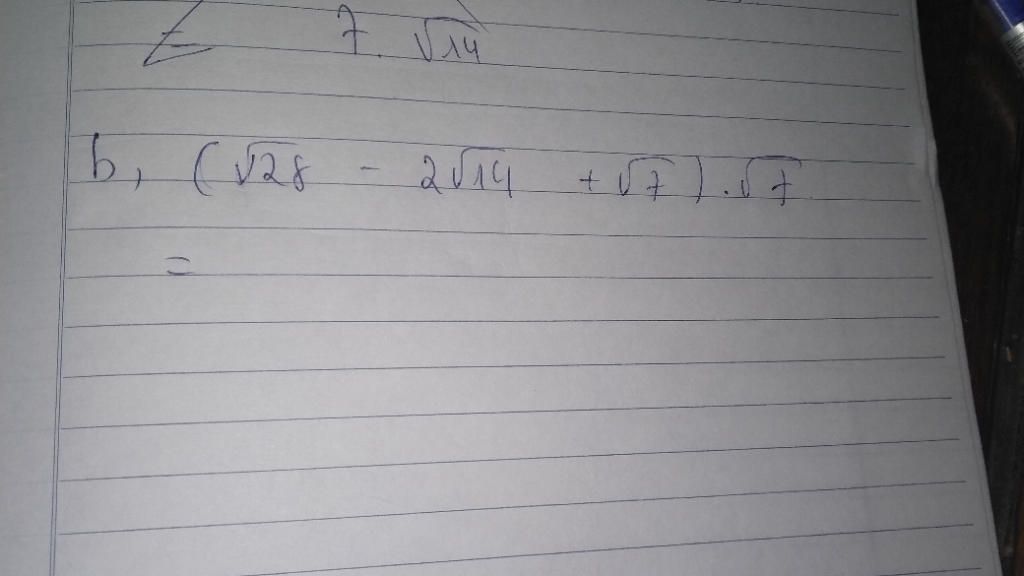 = 7. √14
b, (√28 - 2√14 + √7).√7
=